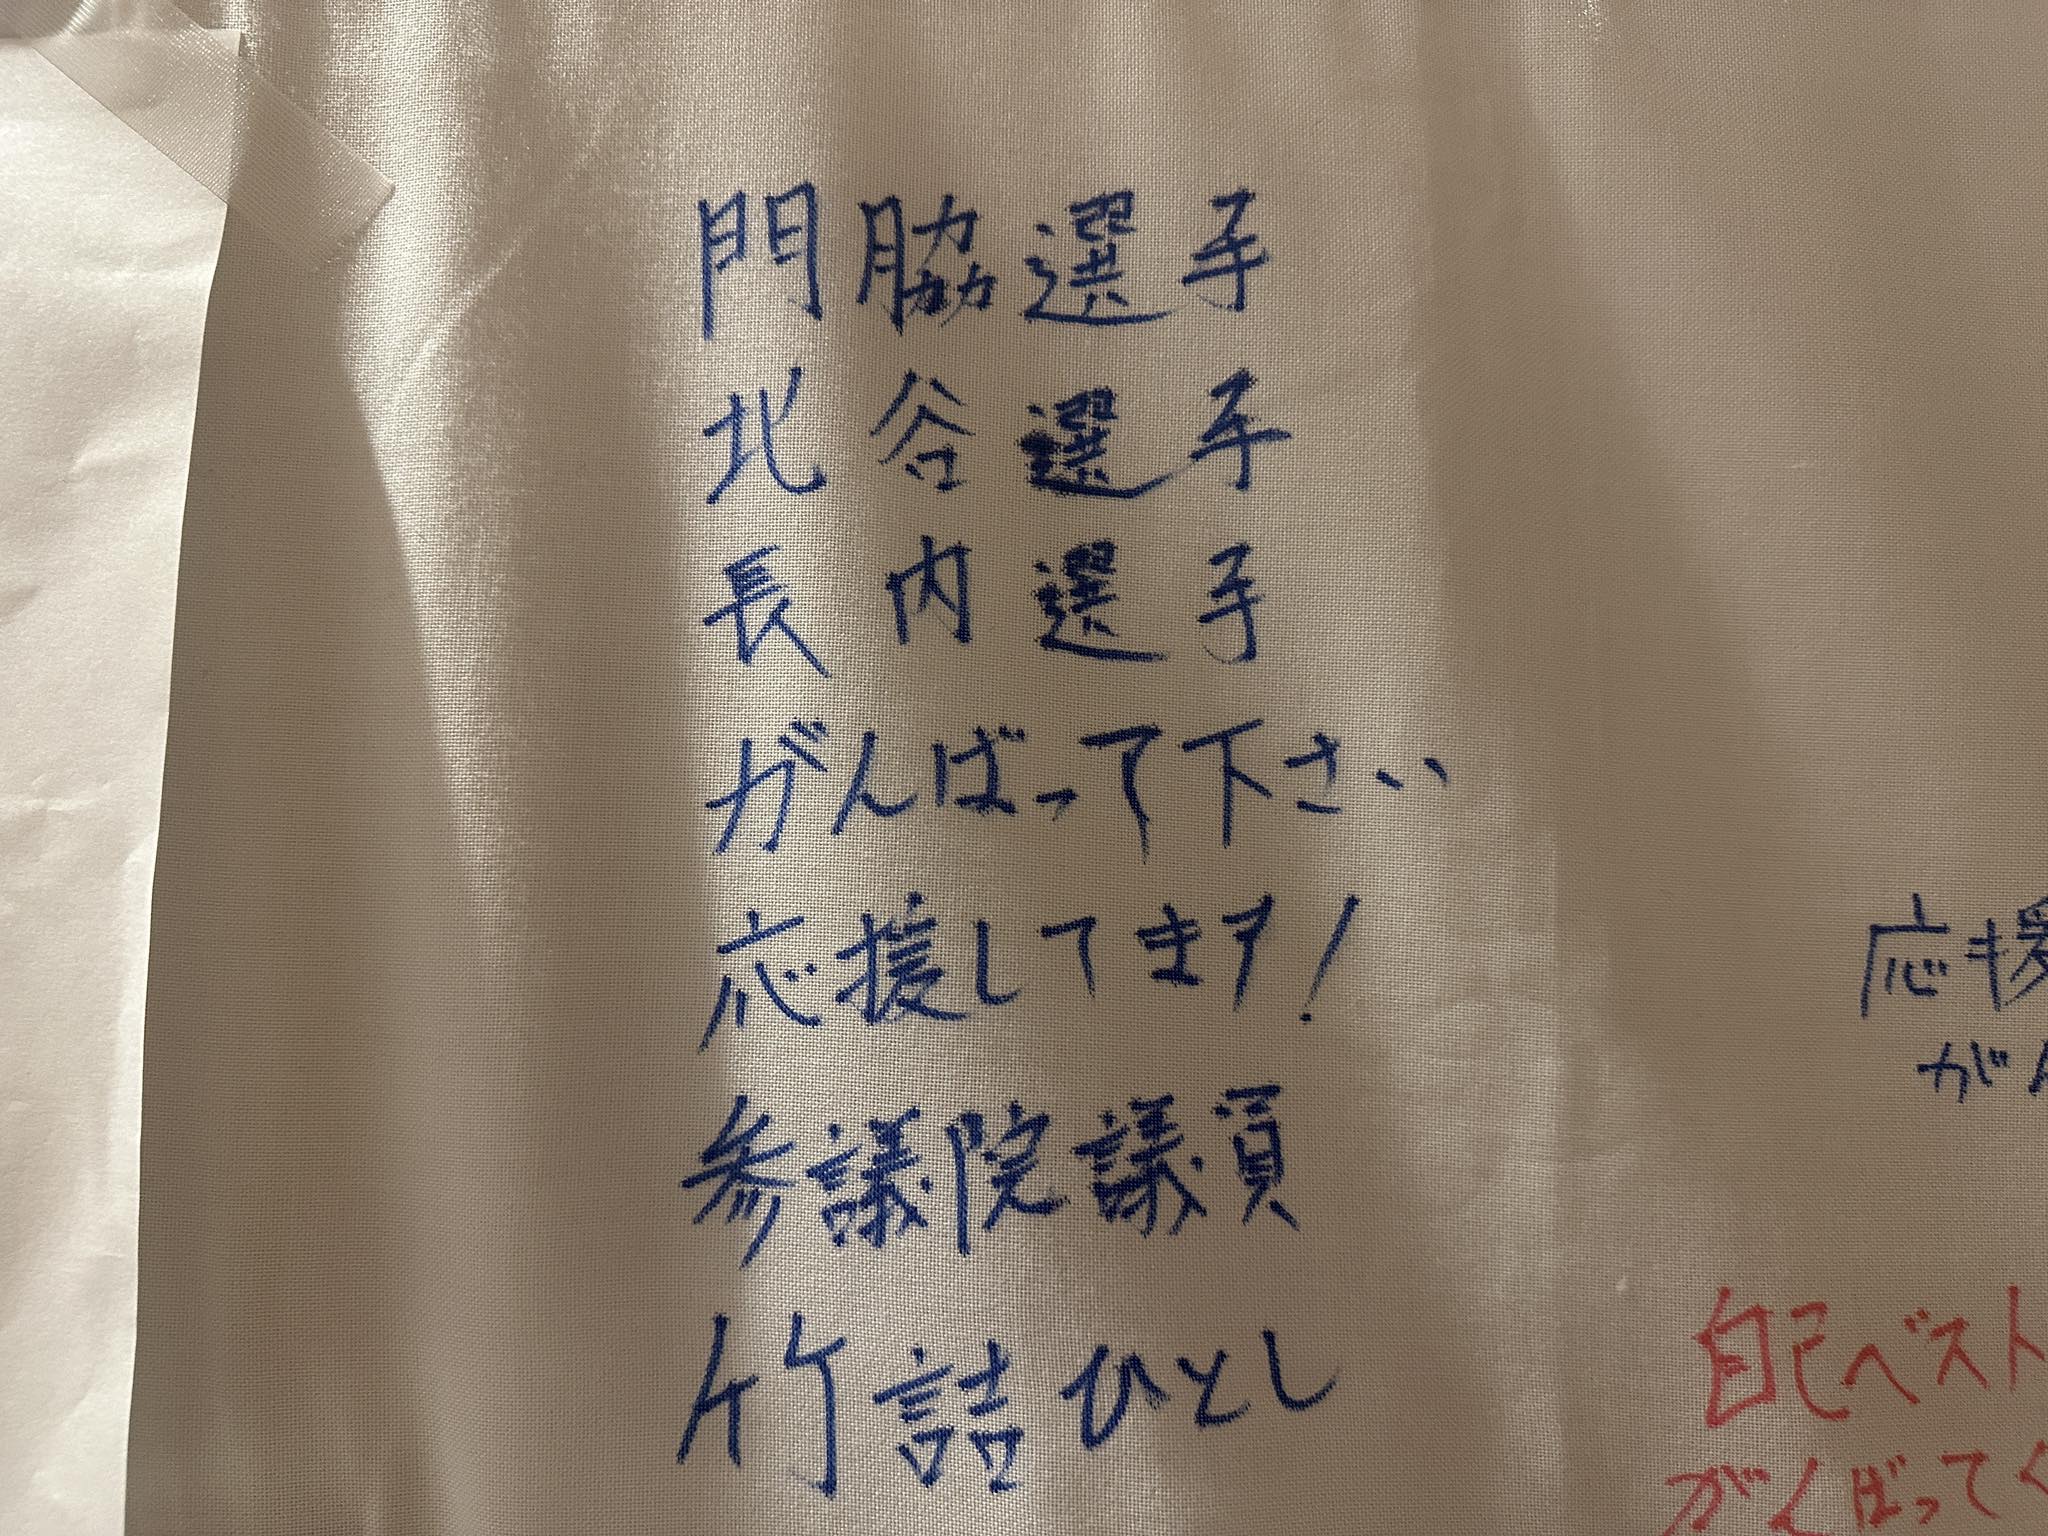 門脇選手
北谷選手
長内選手
がんばって下さい
応援してます!
参議院議員
竹詰ひとし
応援
がん
自己ベスト
がんばってく